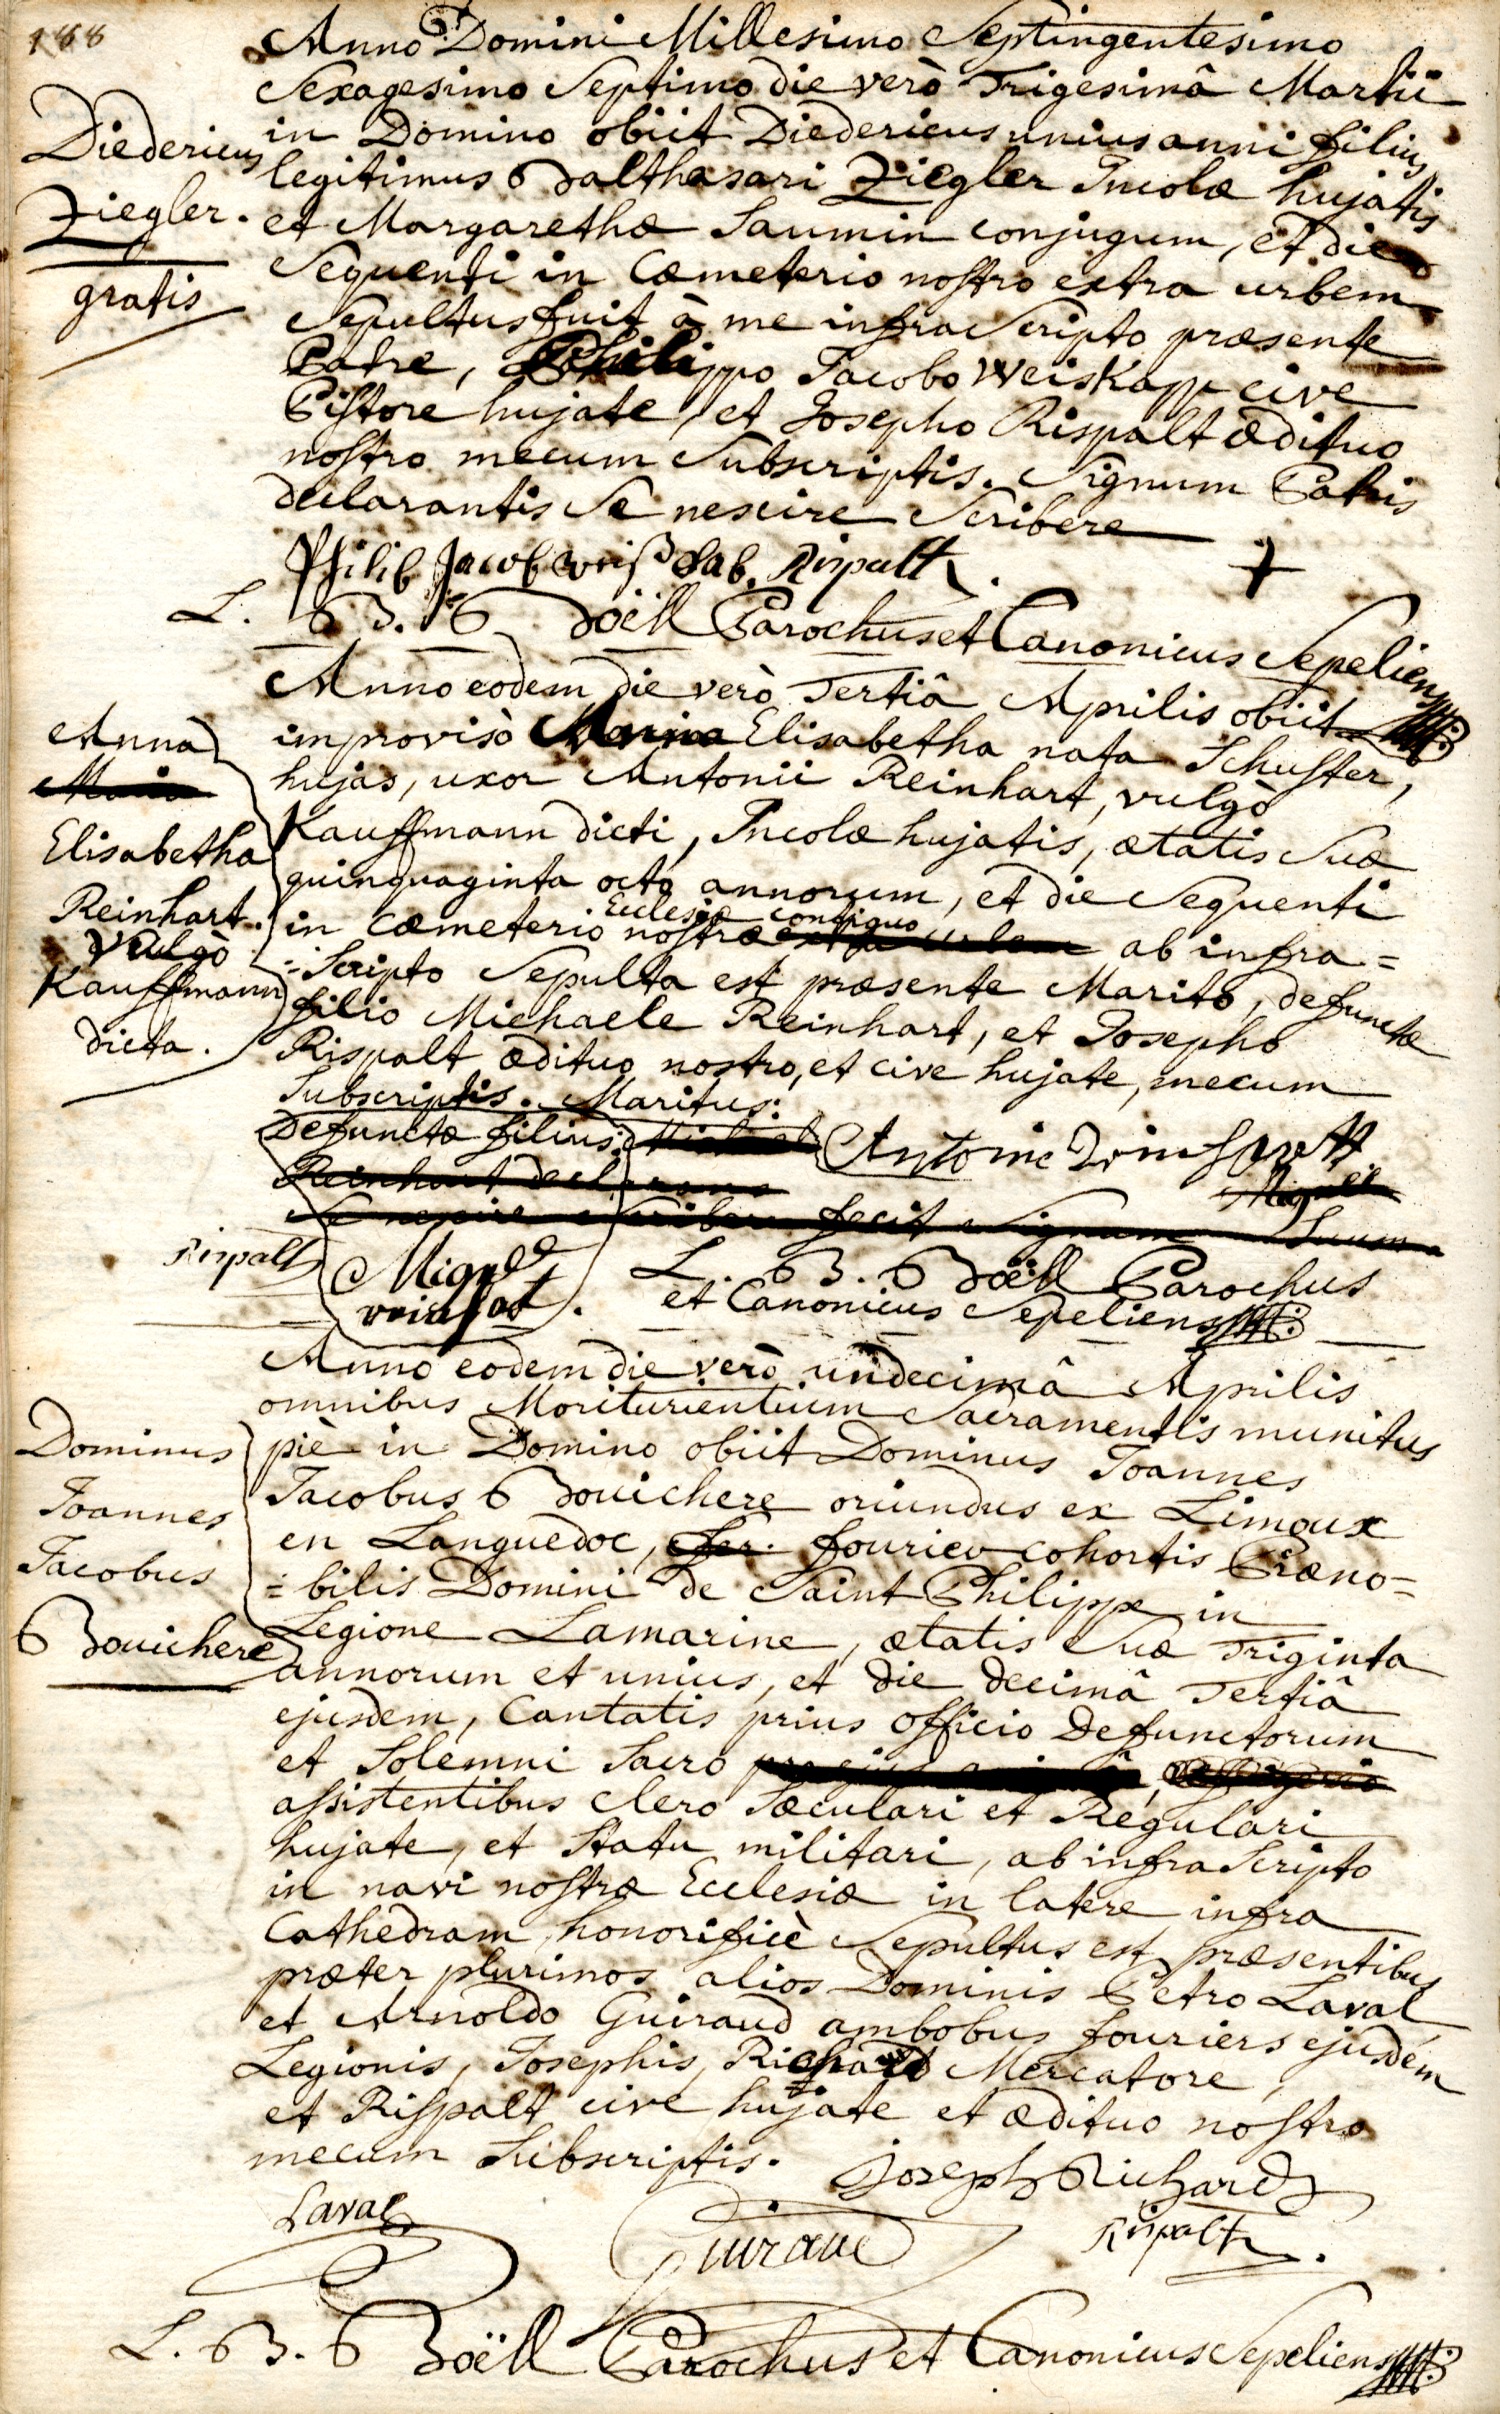 188
Anno Domini Millesimo Septingentesimo
Sexagesimo Septimo die verò Trigesimâ Martii
in Domino obiit Diedericus unius anni filius
legitimus Balthasari Ziegler Incolæ hujatis
et Margarethæ Saumin conjugum, et die
Sequenti in Cœmeterio nostro extra urbem
Sepultus fuit à me infra Scripto præsente
Patre, Philippo Jacobo Weiskapp cive
Pistore hujate, et Josepho Rispalt ædituo
nostro mecum Subscriptis. Signum Patris
declarantis Se nescire Scribere +
Diedericus
Ziegler.
gratis
Philib Jacob weißkab. Rispalt.
L. B. Boëll Parochus et Canonicus Sepeliens
Anno eodem die verò Tertiâ Aprilis obiit
improvisò Elisabetha nata Schuster,
hujas, uxor Antonii Reinhart, vulgò
Kauffmann dicti, Incolæ hujatis, ætatis Suæ
quinquaginta octo annorum, et die Sequenti
Ecclesiæ contiguo
in Cœmeterio nostræ extra urbem ab infra=
=Scripto Sepulta est præsente Marito, defunctæ
filio Michaele Reinhart, et Josepho
Rispalt ædituo nostro, et cive hujate, mecum
Subscriptis. Maritus:
Defunctæ filius: Michael Antonie Reinhartt
Reinhart declarans
Se nescire Scribere fecit Signum Suum
Anna
Maria
Elisabetha
Reinhart.
Vulgò
Kauffmann
dicta.
Rispalt
Migel
reinhart.
L. B. Boëll Parochus
et Canonicus Sepeliens
Anno eodem die verò undecimâ Aprilis
omnibus Moriturientium Sacramentis munitus
piè in Domino obiit Dominus Joannes
Jacobus Bouichere oriundus ex Limoux
en Languedoc, fourier cohortis Præno=
=bilis Domini de Saint Philippe in
Legione Lamarine, ætatis Suæ Triginta
annorum et unius, et die decimâ Tertiâ
ejusdem, Cantatis prius officio Defunctorum
et Solemni Sacro
assistentibus Clero Sæculari et Regulari
hujate, et Statu militari, ab infra Scripto
in navi nostræ Ecclesiæ in latere infra
Cathedram, honorificè Sepultus est præsentibus
præter plurimos alios Dominis Petro Laval
et Arnoldo Guiraud ambobus fouriers ejusdem
Legionis, Josephis, Richard Mercatore,
et Rispalt cive hujate et ædituo nostro
mecum Subscriptis.
Dominus
Joannes
Jacobus
Bouichere
Joseph Richard
Laval
Guiraud
Rispalt.
L. B. Boëll Parochus et Canonicus Sepeliens